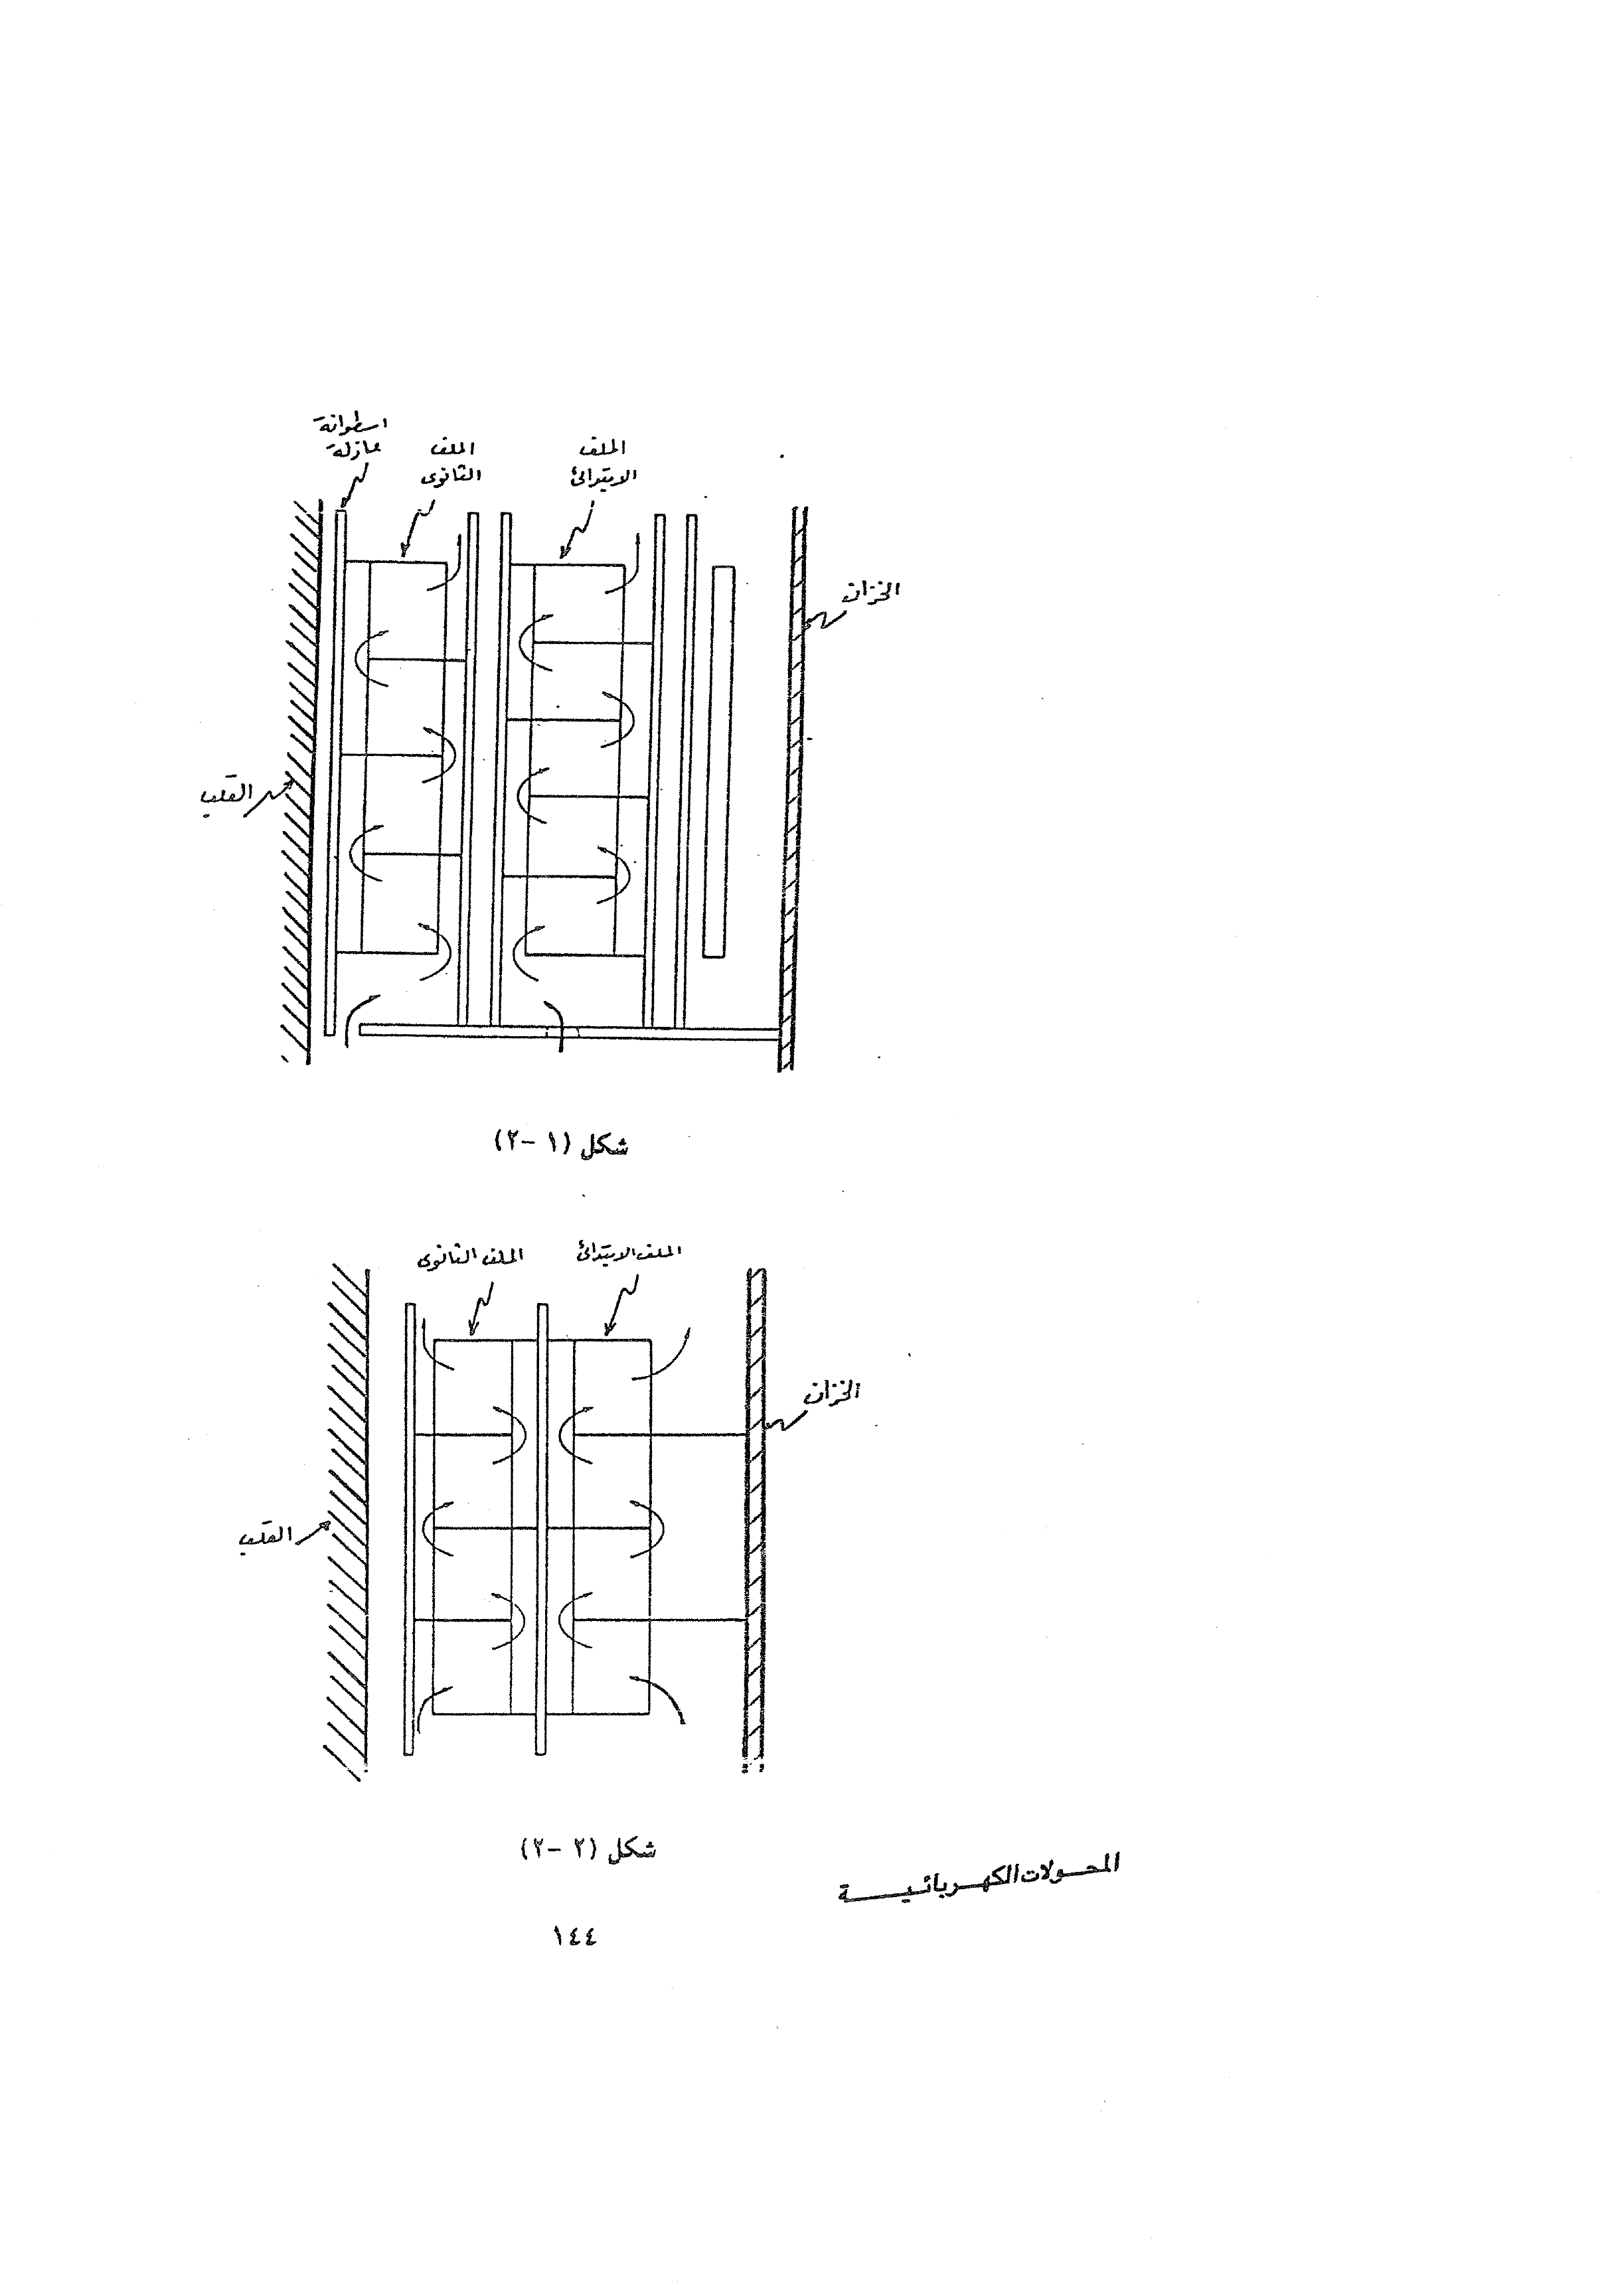 اسطوانة
عازلة
الملف
الثانوى
الملف
الابتدائى
الخزان
القلب
شكل (١ -٢)
الملف الثانوى
الملف الابتدائى
الخزان
القلب
شكل (٢ -٢)
المحـولات الكهـربائيـــة
١٤٤